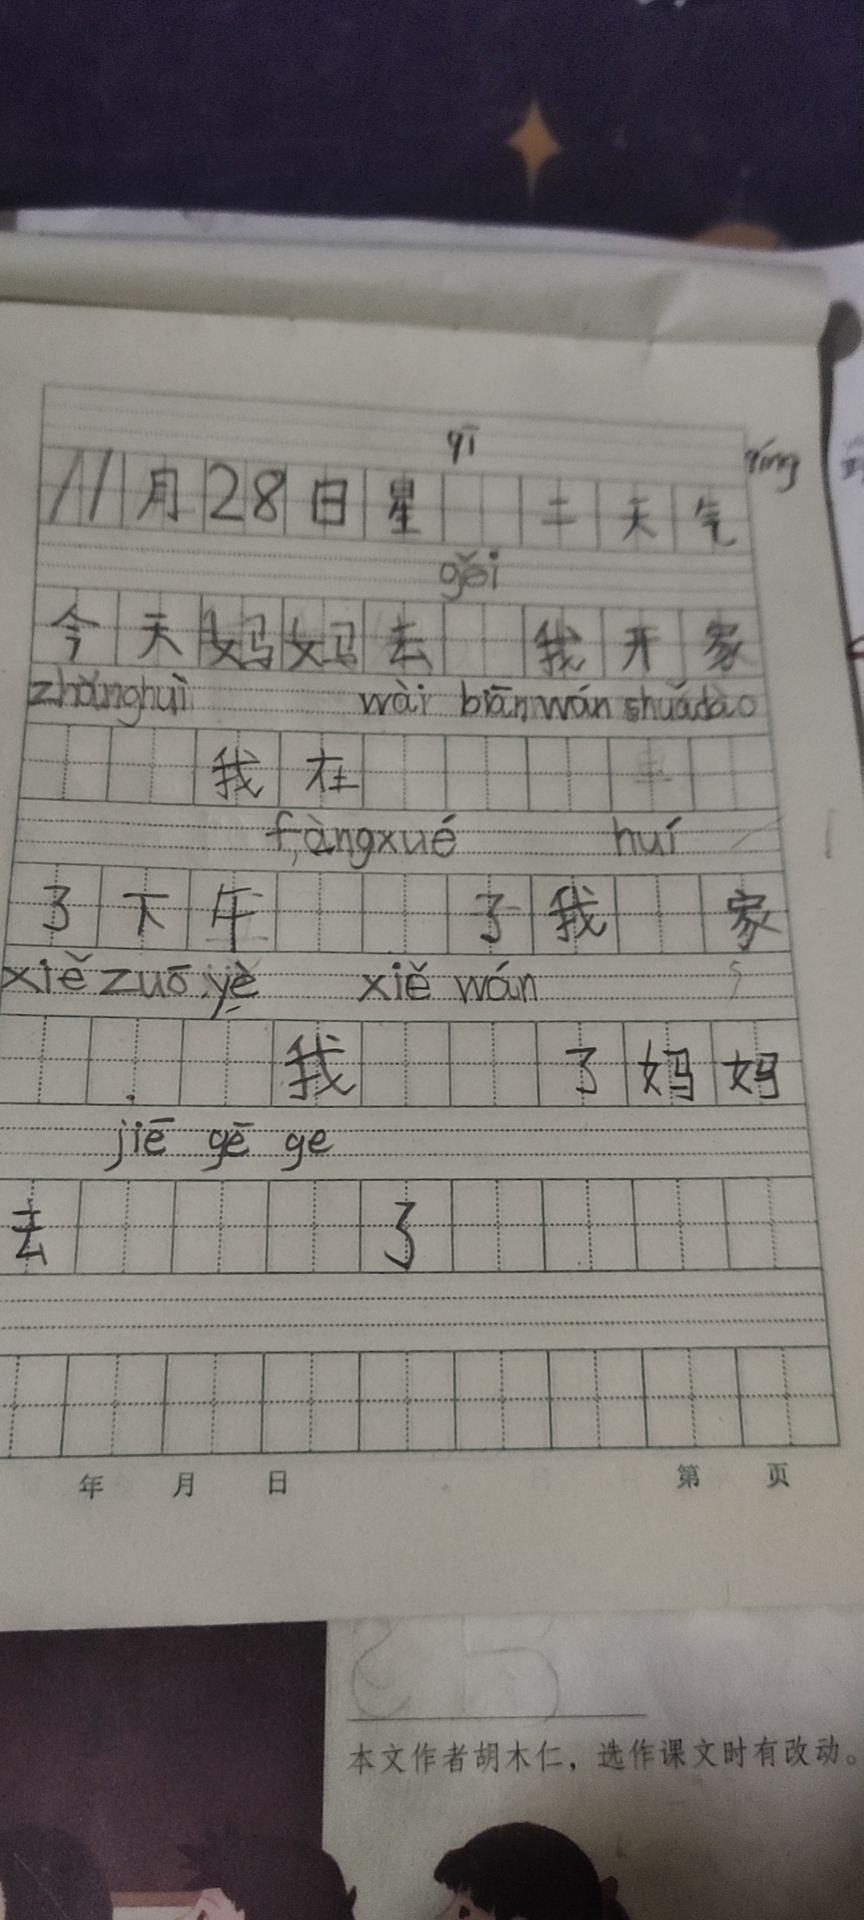 qī qíng
11月28日星 二天气
gěi
今天妈妈去 我开家
zhǎnghuì wài biān wán shuǎdào
我在
fàngxué huí
了下午 了我 家
xiě zuō yè xiě wán
我 了妈妈
jiē gē ge
去 了
年 月 日 第 页
本文作者胡木仁，选作课文时有改动。